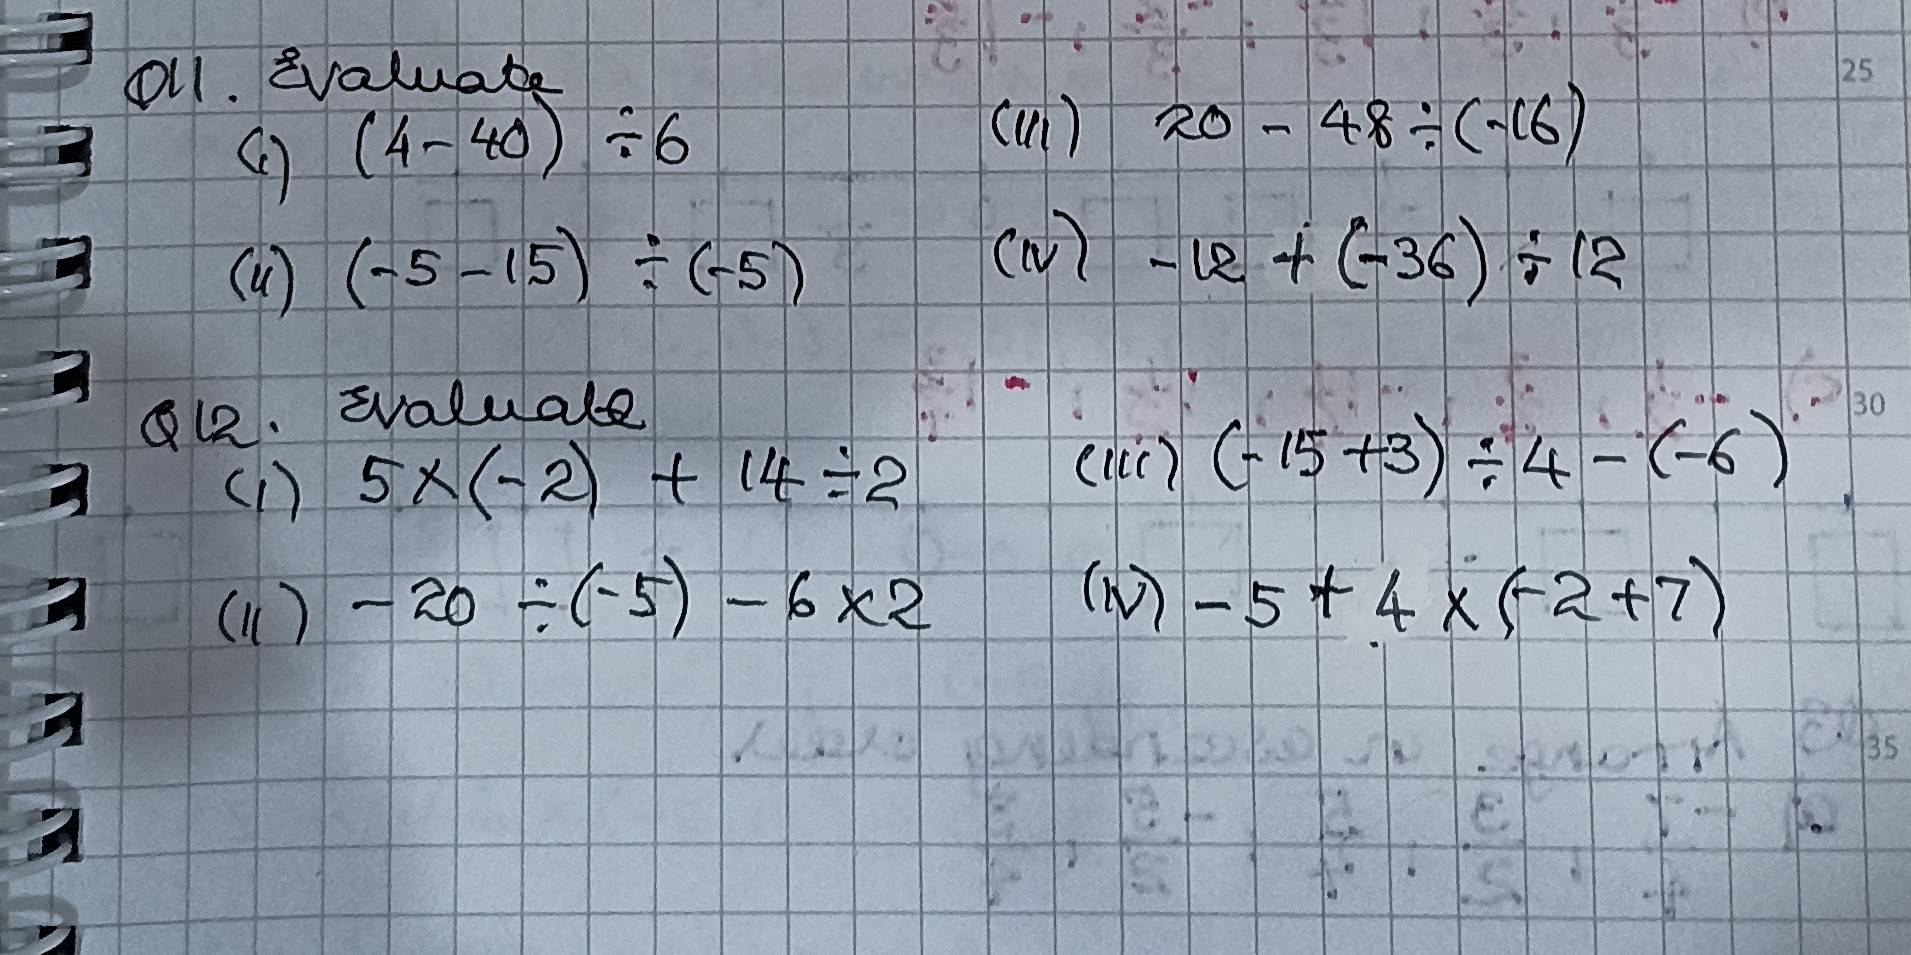 Q11. Evaluate
(i) (4 - 40) ÷ 6
(iii) 20 - 48 ÷ (-16)
(ii) (-5 - 15) ÷ (-5)
(iv) -12 + (-36) ÷ 12
Q12. Evaluate
(i) 5 × (-2) + 14 ÷ 2
(iii) (-15 + 3) ÷ 4 - (-6)
(ii) -20 ÷ (-5) - 6 × 2
(iv) -5 + 4 × (-2 + 7)
25
30
35